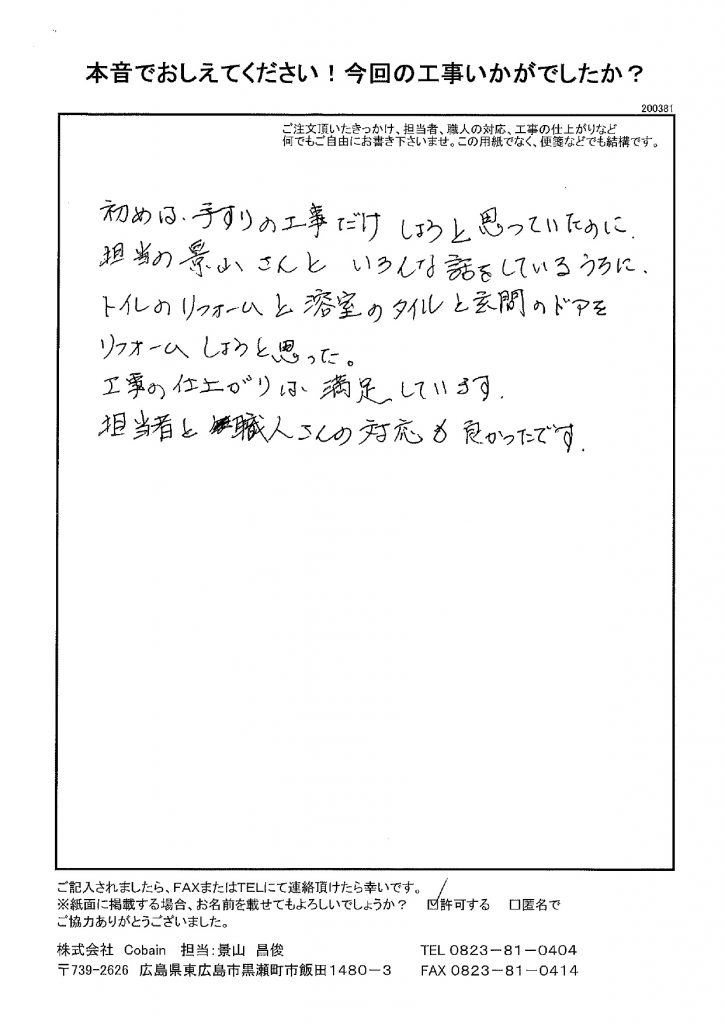 本音でおしえてください！今回の工事いかがでしたか？
200381
ご注文頂いたきっかけ、担当者、職人の対応、工事の仕上がりなど
何でもご自由にお書き下さいませ。この用紙でなく、便箋などでも結構です。
初めは、手すりの工事だけ しようと思っていたのに、
担当の景山さんと いろんな話をしているうちに、
トイレのリフォームと浴室のタイルと玄関のドアを
リフォームしようと思った。
工事の仕上がりは、満足しています。
担当者と職人さんの対応も良かったです。
ご記入されましたら、FAXまたはTELにて連絡頂けたら幸いです。
※紙面に掲載する場合、お名前を載せてもよろしいでしょうか？ ☑許可する □匿名で
ご協力ありがとうございました。
株式会社 Cobain 担当：景山 昌俊 TEL 0823－81－0404
〒739-2626 広島県東広島市黒瀬町市飯田1480－3 FAX 0823－81－0414